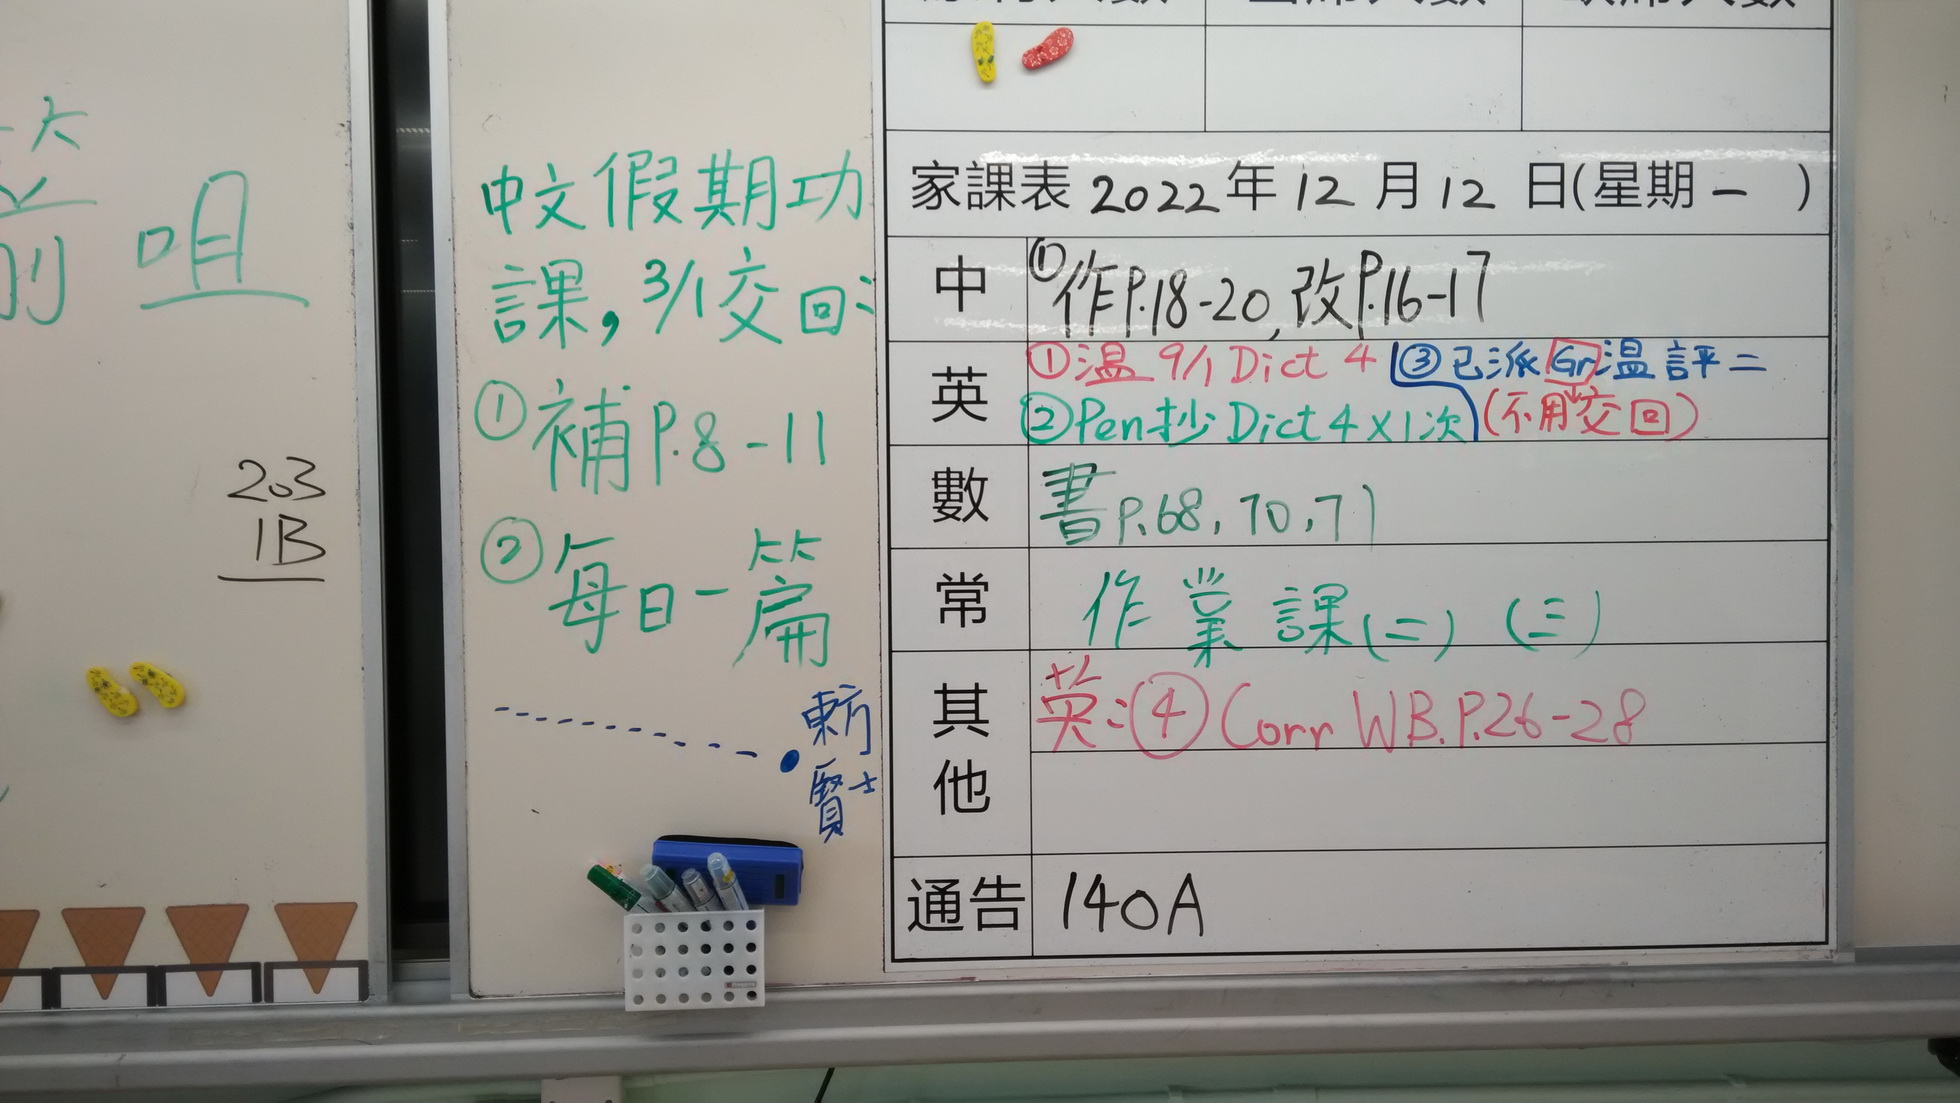 前 咀
203
1B
中文假期功
課，3/1交回：
①補P.8-11
②每日一篇
家課表 2022年12月12日(星期一 )
中 ①作P.18-20, 改P.16-17
英 ①溫 9/1 Dict 4 ③已派Gr溫評二
②Pen抄 Dict 4 x 1次 (不用交回)
數 書P.68, 70, 71
常 作業課(二) (三)
其他 英：④ Corr WB.P.26-28
通告 140A